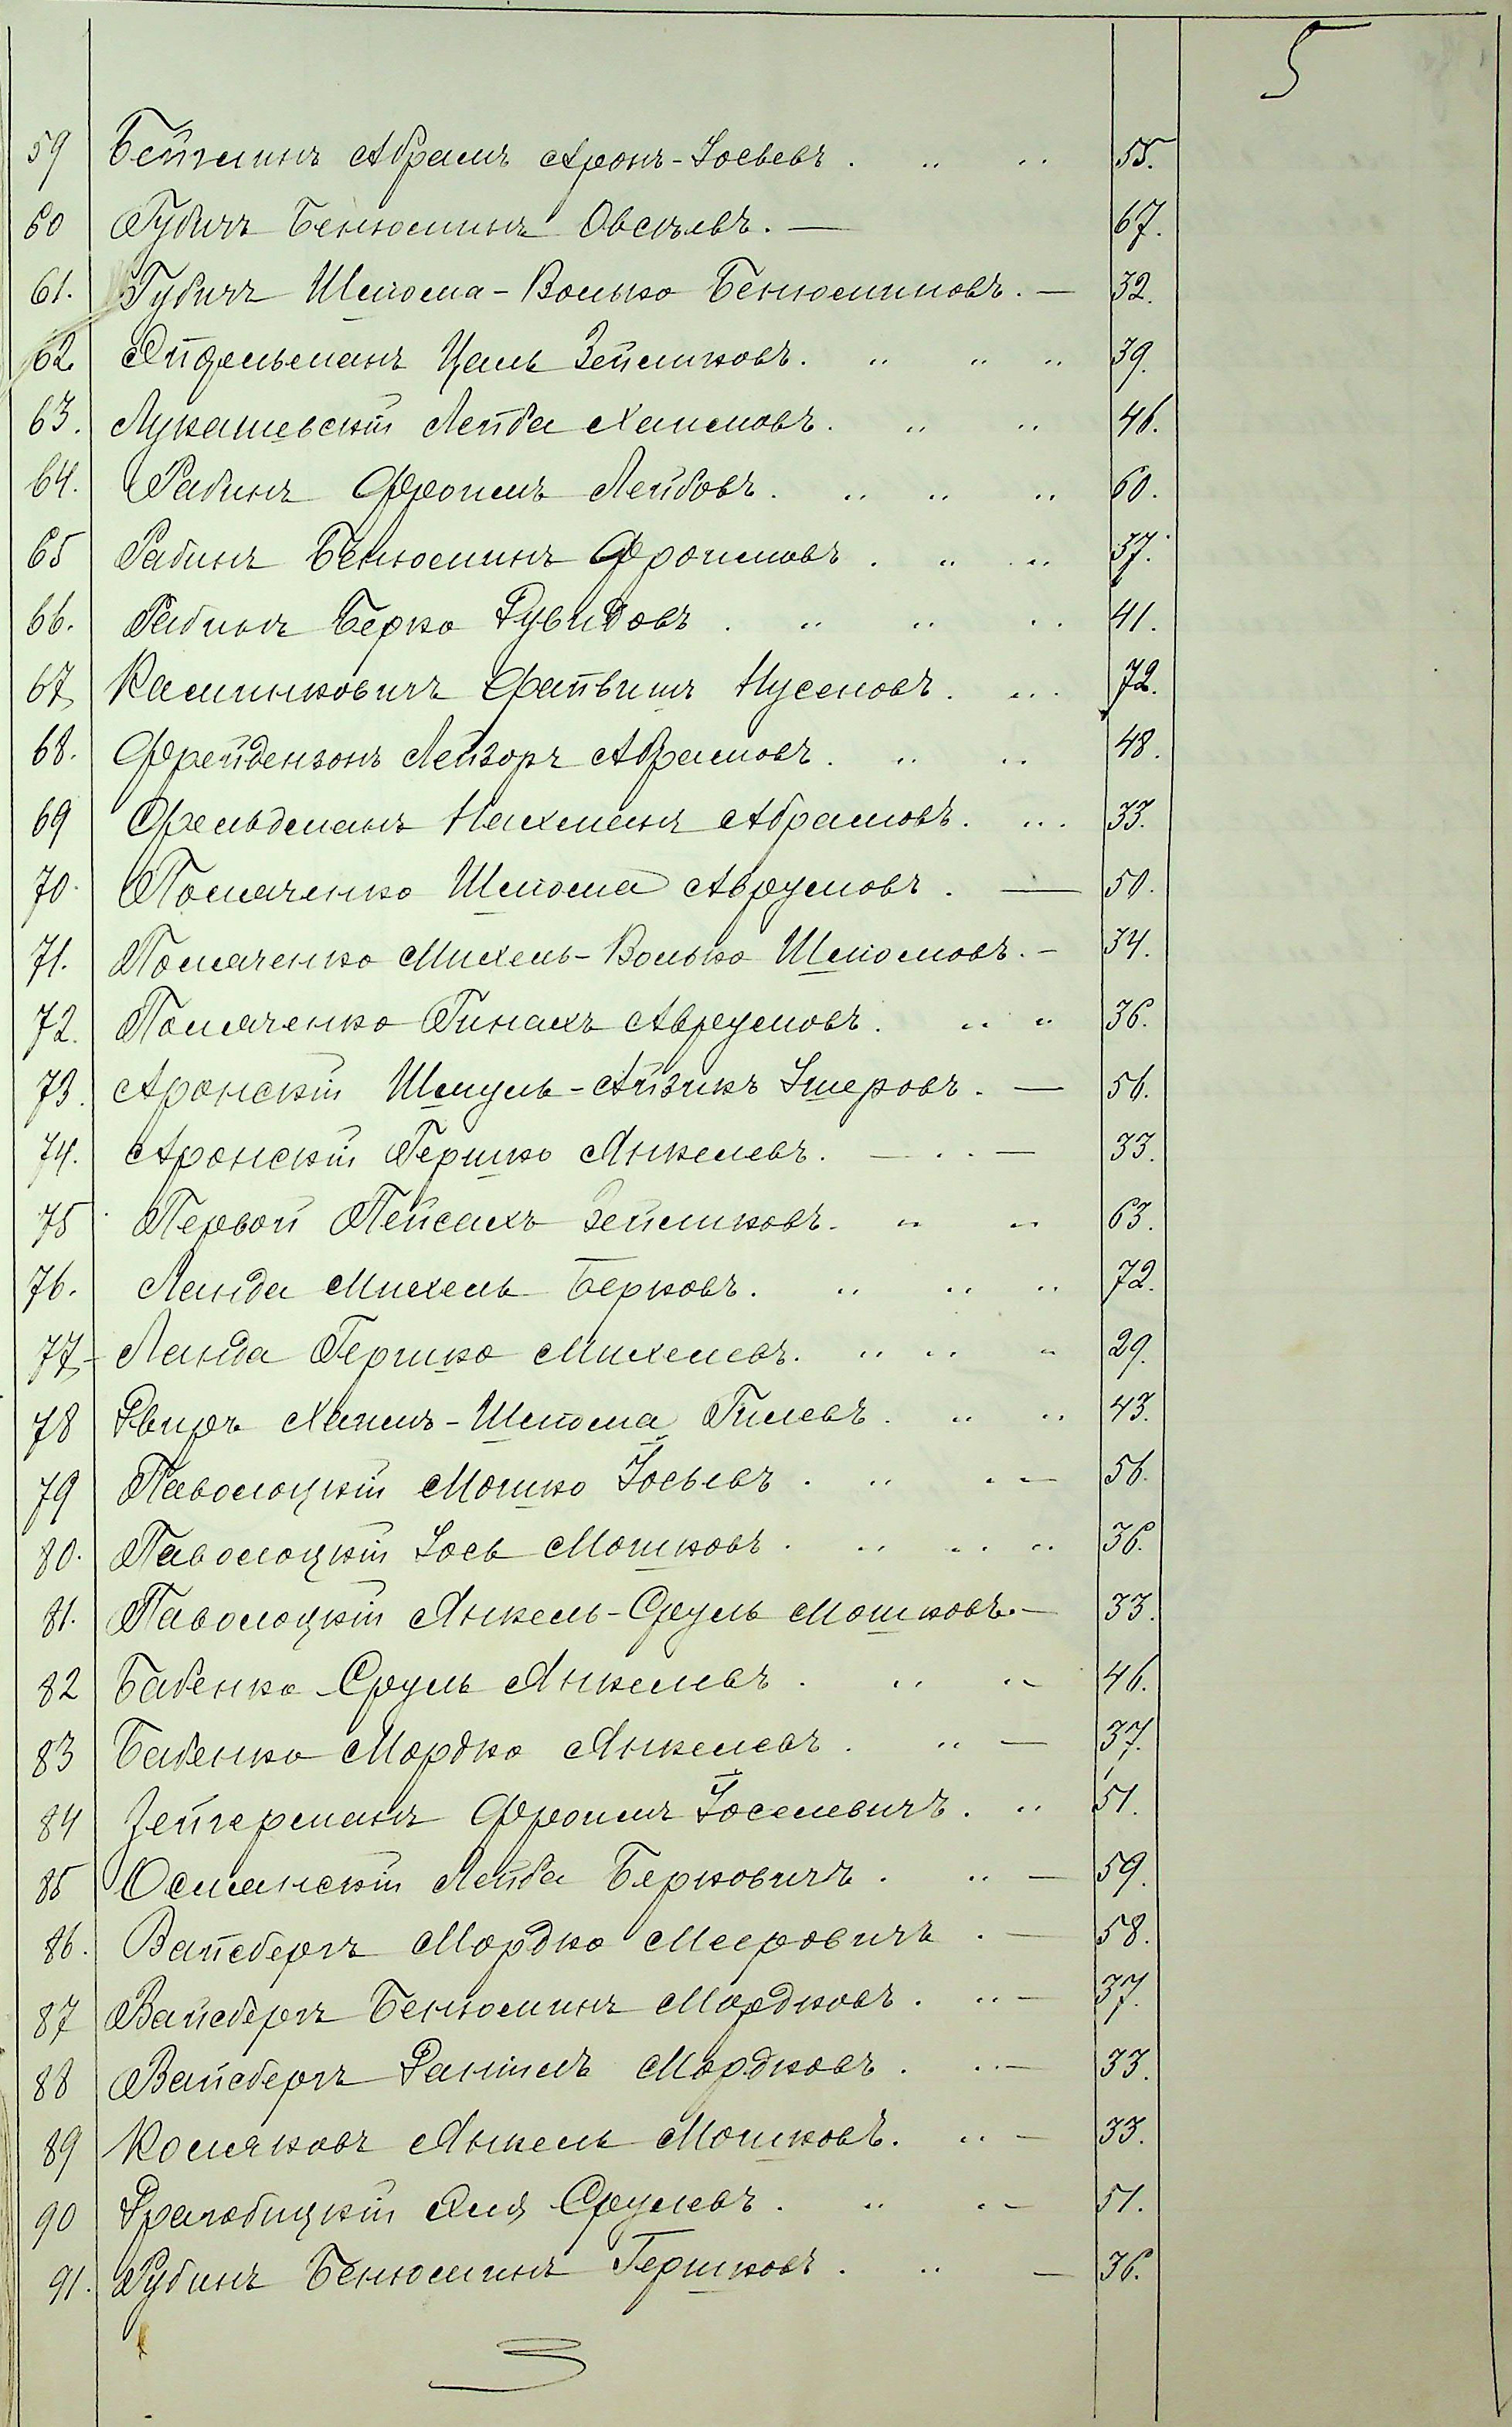 5
59 Бейгминъ Абрамъ Аронъ-Іосьевъ . „ „ 55.
60 Губичъ Бенюминъ Овсѣевъ. — 67.
61. Губичъ Шлиома-Волько Бенюминовъ. — 32.
62. Эйдельманъ Цаль Зейликовъ. „ „ „ 39.
63. Лукашевскій Лейба Хаимовъ. „ „ 46.
64. Рабинъ Фроимъ Лейбовъ. „ „ „ 60.
65 Рабинъ Бенюминъ Фроимовъ . „ „ 37.
66. Рабинъ Берко Дувидовъ . „ „ „ 41.
67. Калинковичъ Файвишъ Нусеновъ. „ . 72.
68. Фрейдензонъ Лейзоръ Абрамовъ. „ „ 48.
69 Фельдманъ Нахманъ Абрамовъ. „ . 33.
70. Толмаченко Шлиома Аврумовъ . — 50.
71. Толмаченко Михель-Волько Шлиомовъ. — 34.
72. Толмаченко Пинахъ Аврумовъ. „ „ 36.
73. Аронскій Шмуль-Айзикъ Ушеровъ. — 56.
74. Аронскій Гершко Янкелевъ. — „ — 33.
75 Первой Пейсахъ Зейликовъ. „ „ 63.
76. Ланда Михель Берковъ. „ „ „ 72.
77. Ланда Гершко Михелевъ. „ „ „ 29.
78 Двиръ Хаимъ-Шлиома Гилевъ. „ „ 43.
79 Паволоцкій Мошко Іосьевъ . „ „ — 56.
80. Паволоцкій Іось Мошковъ . „ „ „ 36.
81. Паволоцкій Янкель-Сруль Мошковъ. — 33.
82 Бабенко Сруль Янкелевъ . „ „ 46.
83 Бабенко Мордко Янкелевъ . „ — 37.
84 Зейгерманъ Фроимъ Іоселевичъ. „ 51.
85 Османскій Лейба Берковичъ . „ — 59.
86. Вайсбергъ Мордко Мееровичъ . — 58.
87 Вайсбергъ Бенюминъ Мордковъ . „ — 37.
88 Вайсбергъ Данiилъ Мордковъ . „ — 33.
89 Колчковъ Янкель Мошковъ. „ — 33.
90 Драгобицкій Эля Срулевъ . „ „ — 51.
91. Рубинъ Бенюминъ Гершковъ . „ — 36.